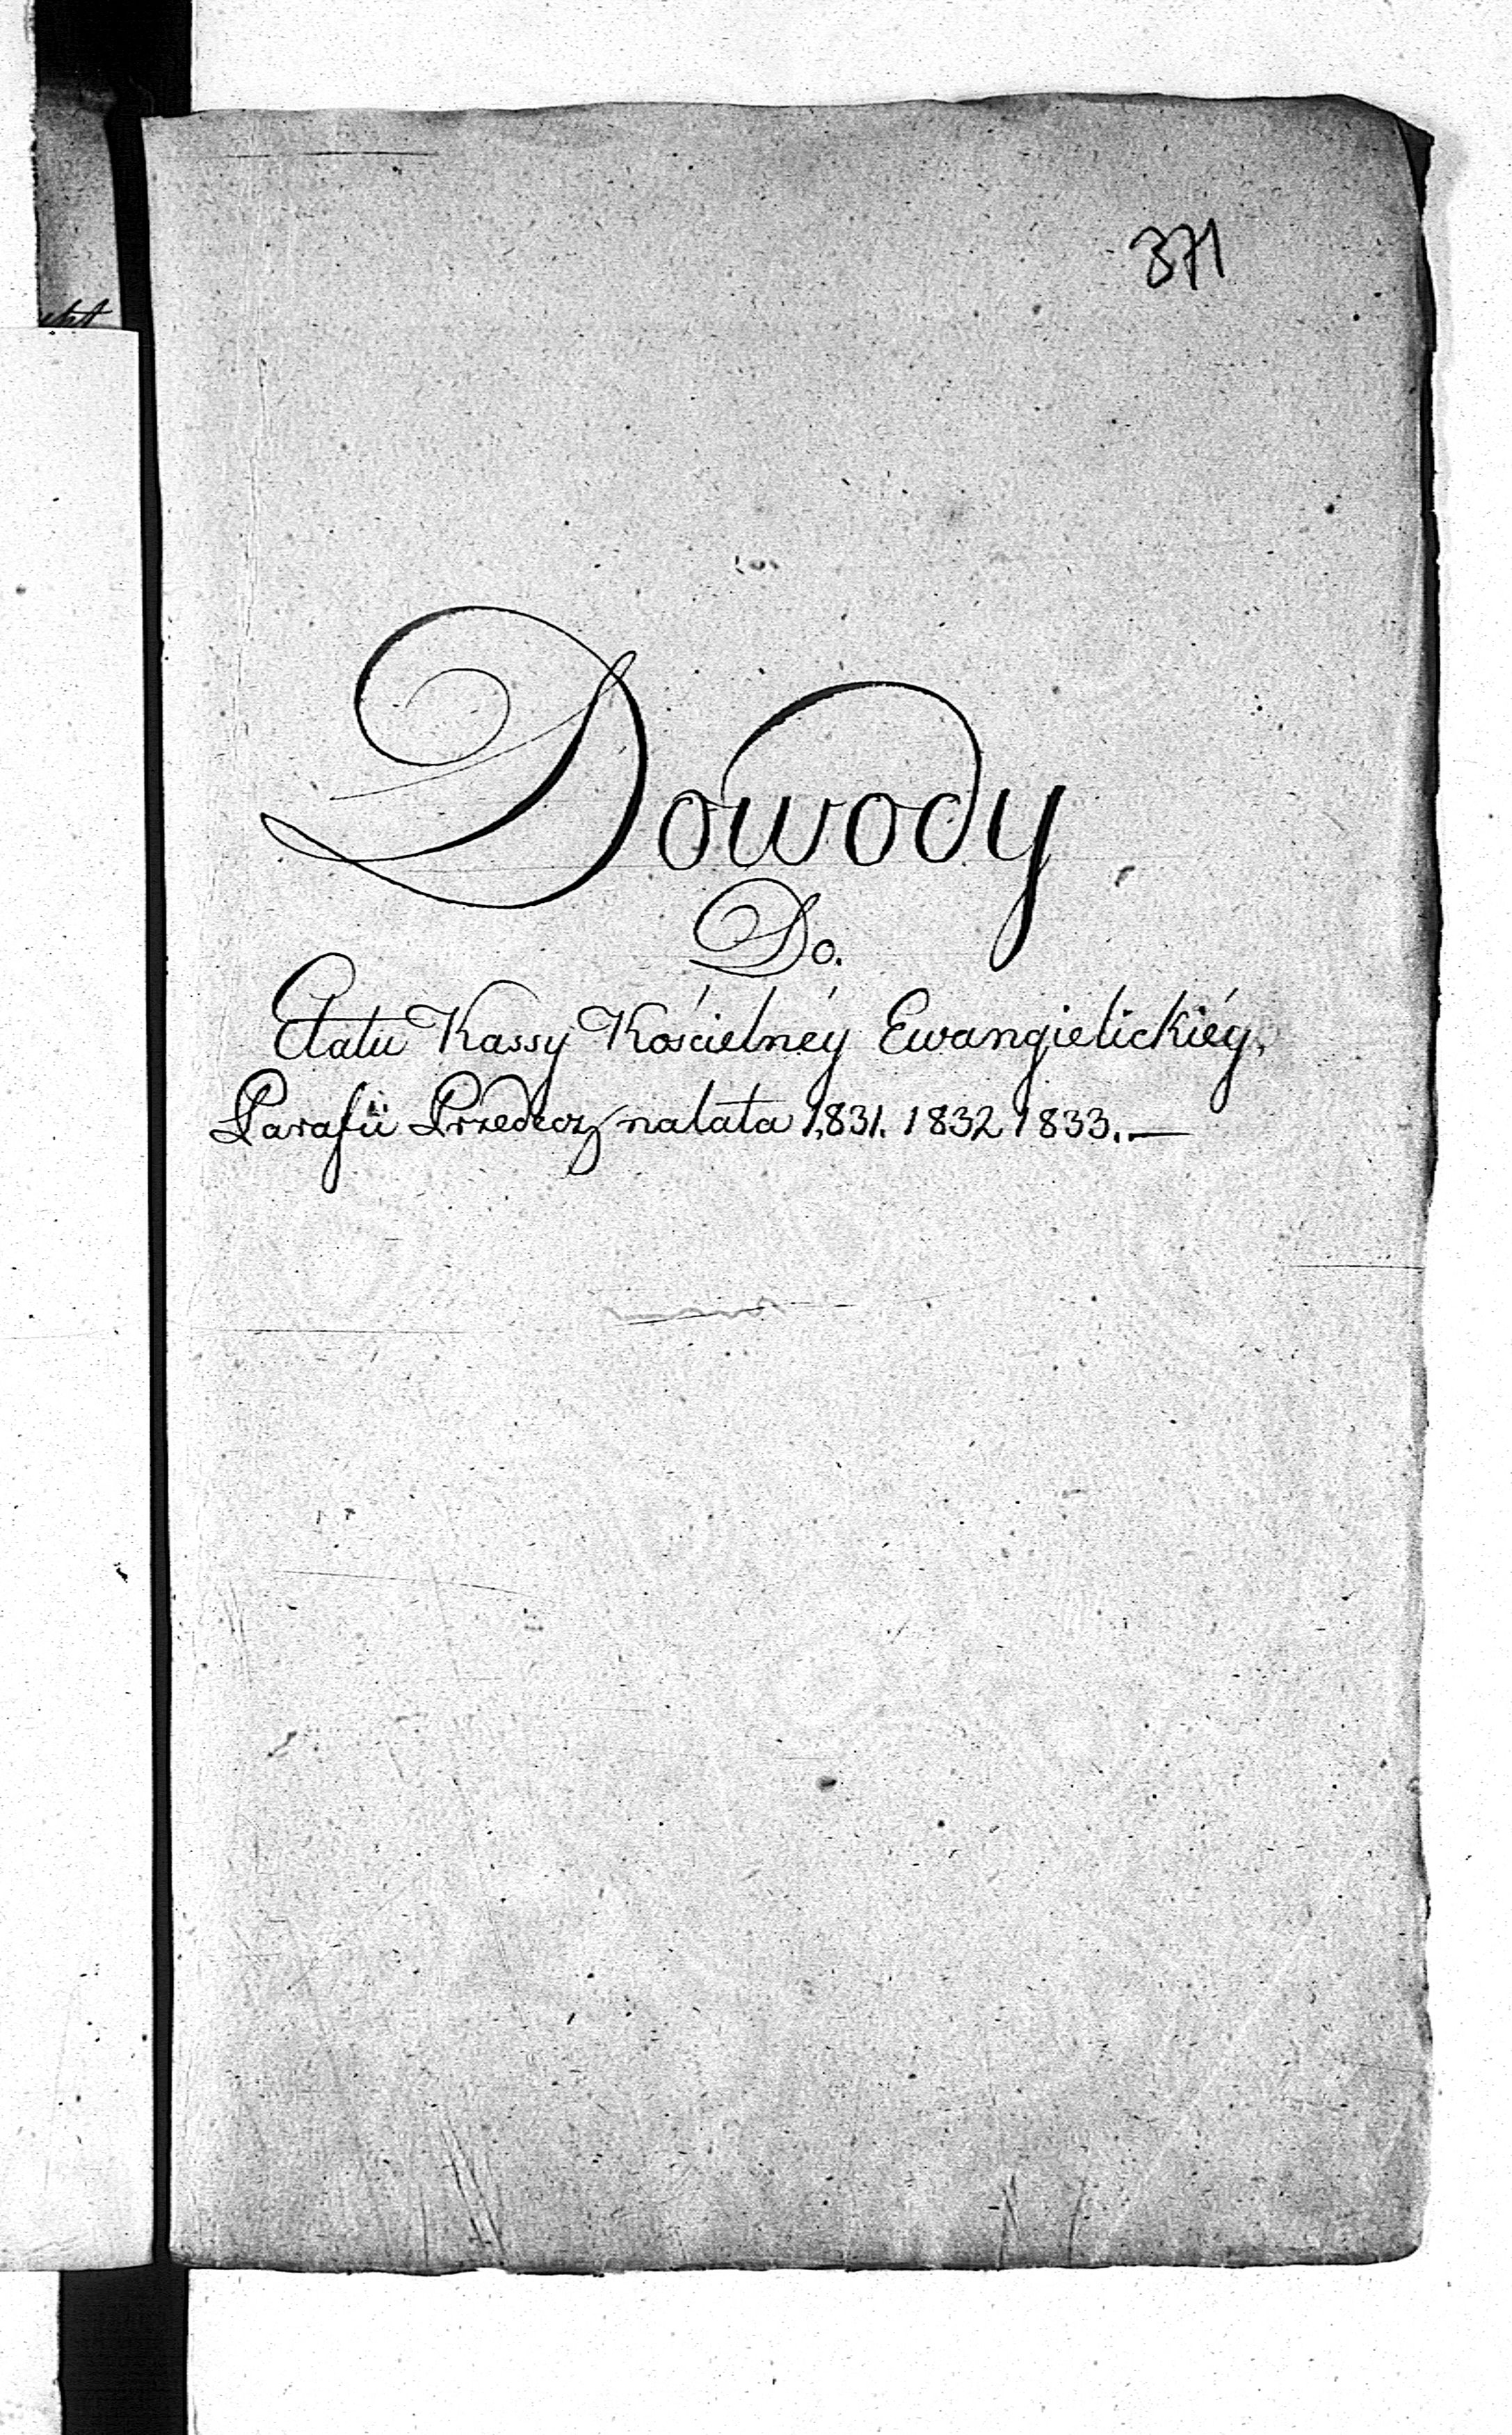 371
Dowody
Do.
Etatu Kassy Kościelnéy Ewangielickiéy,
Parafii Przedecz na lata 1831. 1832 1833. —